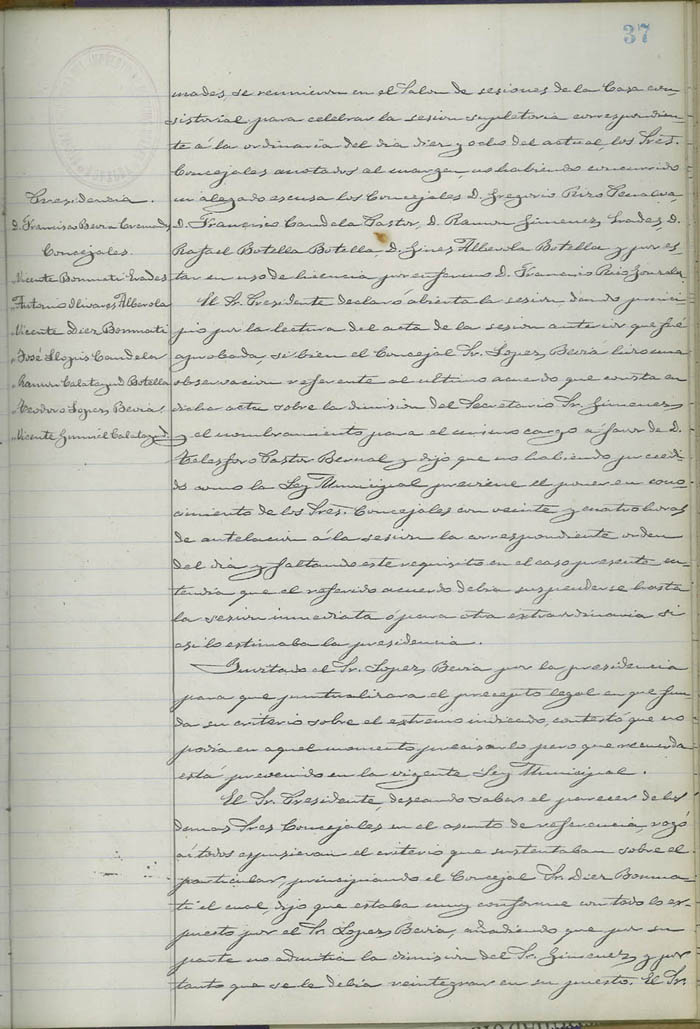 37
mados, se reunieron en el Salon de sesiones de la Casa con-
sistorial para celebrar la sesion supletoria correspondien-
te á la ordinaria del dia diez y ocho del actual los Sres.
Concejales anotados al margen, no habiendo concurrido
ni alegado escusa los Concejales D. Gregorio Rizo Penalva,
D. Francisco Candela Pastor, D. Ramon Gimenez Prades, D.
Rafael Botella Botella, D. Gines Alberola Botella y por es-
tar en uso de licencia por enfermo D. Francisco
Presidencia.
D. Francisco
Concejales
Vicente Bonmati Prades
Antonio Olivares Alberola
Vicente Diez Bonmati
José Llopis Candela
Ramon Calatayud Botella
Teodoro Lopez Beviá
Vicente Calatayud
El Sr. Presidente declaró abierta la sesion dando princi-
pio por la lectura del acta de la sesion anterior que fué
aprobada, si bien el Concejal Sr. Lopez Beviá hizo una
observacion referente al ultimo acuerdo que consta en
dicha acta sobre la dimision del Secretario Sr. Gimenez
y el nombramiento para el mismo cargo a favor de D.
Telesforo Pastor Bernal y dijo que no habiendo precedi-
do como la Ley Municipal previene el poner en cono-
cimiento de los Sres. Concejales con veinte y cuatro horas
de antelacion á la sesion la correspondiente orden
del dia y faltando este requisito en el caso presente en-
tendia que el referido acuerdo debia suspenderse hasta
la sesion inmediata ó para otra extraordinaria si
asi lo estimaba la presidencia.
Invitado el Sr. Lopez Beviá por la presidencia
para que puntualizara el precepto legal en que fun-
da su criterio sobre el estremo indicado, contestó que no
podia en aquel momento precisarlo pero que recuerda
está prevenido en la vigente Ley Municipal.
El Sr. Presidente deseando saber el parecer de los
demas Sres Concejales en el asunto de referencia, rogó
á todos espusieran el criterio que sustentaban sobre el
particular, principiando el Concejal Sr. Diez Bonma-
ti el cual, dijo que estaba muy conforme con todo lo es-
puesto por el Sr. Lopez Beviá, añadiendo que por su
parte no admitia la dimision del Sr. Gimenez y por
tanto que se le debia reintegrar en su puesto. El Sr.